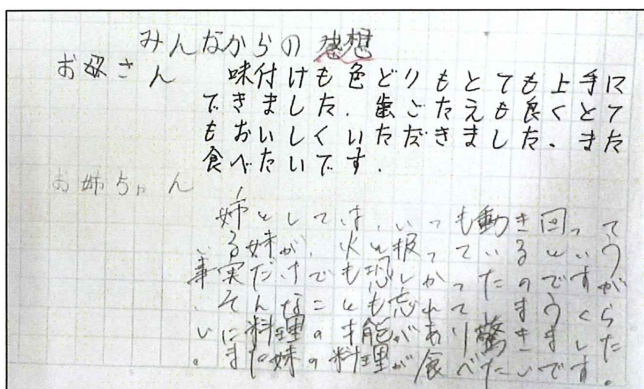 みんなからの感想
お母さん
味付けも色どりもとても上手に
できました。歯ごたえも良くとて
もおいしくいただきました。また
食べたいです。
お姉ちゃん
姉としては、いつも動き回って
る妹が、火を扱っているという
事実だけでも恐しかったのですが
、そんなことも忘れてしまうくら
いに料理の才能があり驚きました
。また妹の料理が食べたいです。